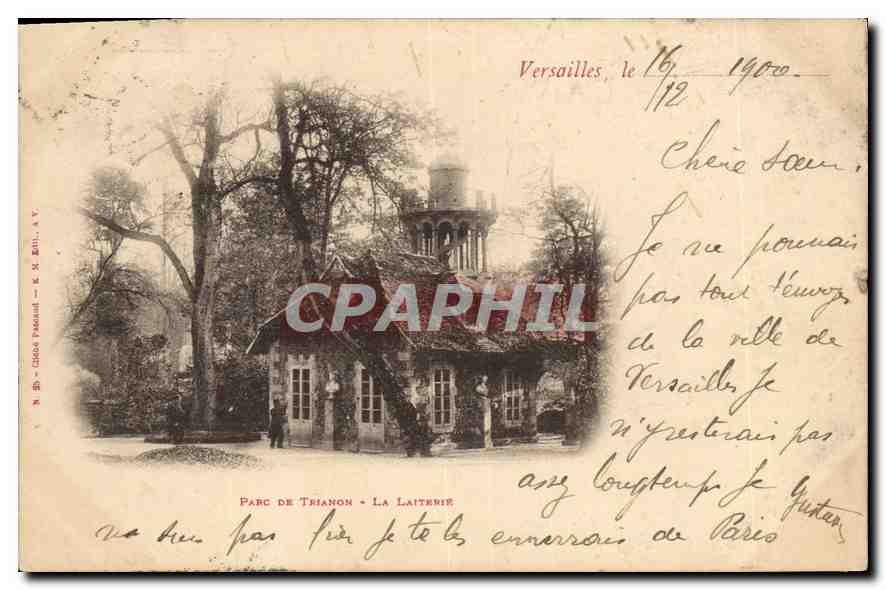 Versailles, le 16/12 1900.
Chère Sœur.
Je ne pouvais
pas tout t'envoyer
de la ville de
Versailles Je
n'y resterais pas
assez longtemps Je
pas lier je te les enverrais de Paris
Gustave
PARC DE TRIANON - LA LAITERIE
N. 25 - Cliché Pascaud - E. M. Edit., A V.
CPAPHIL